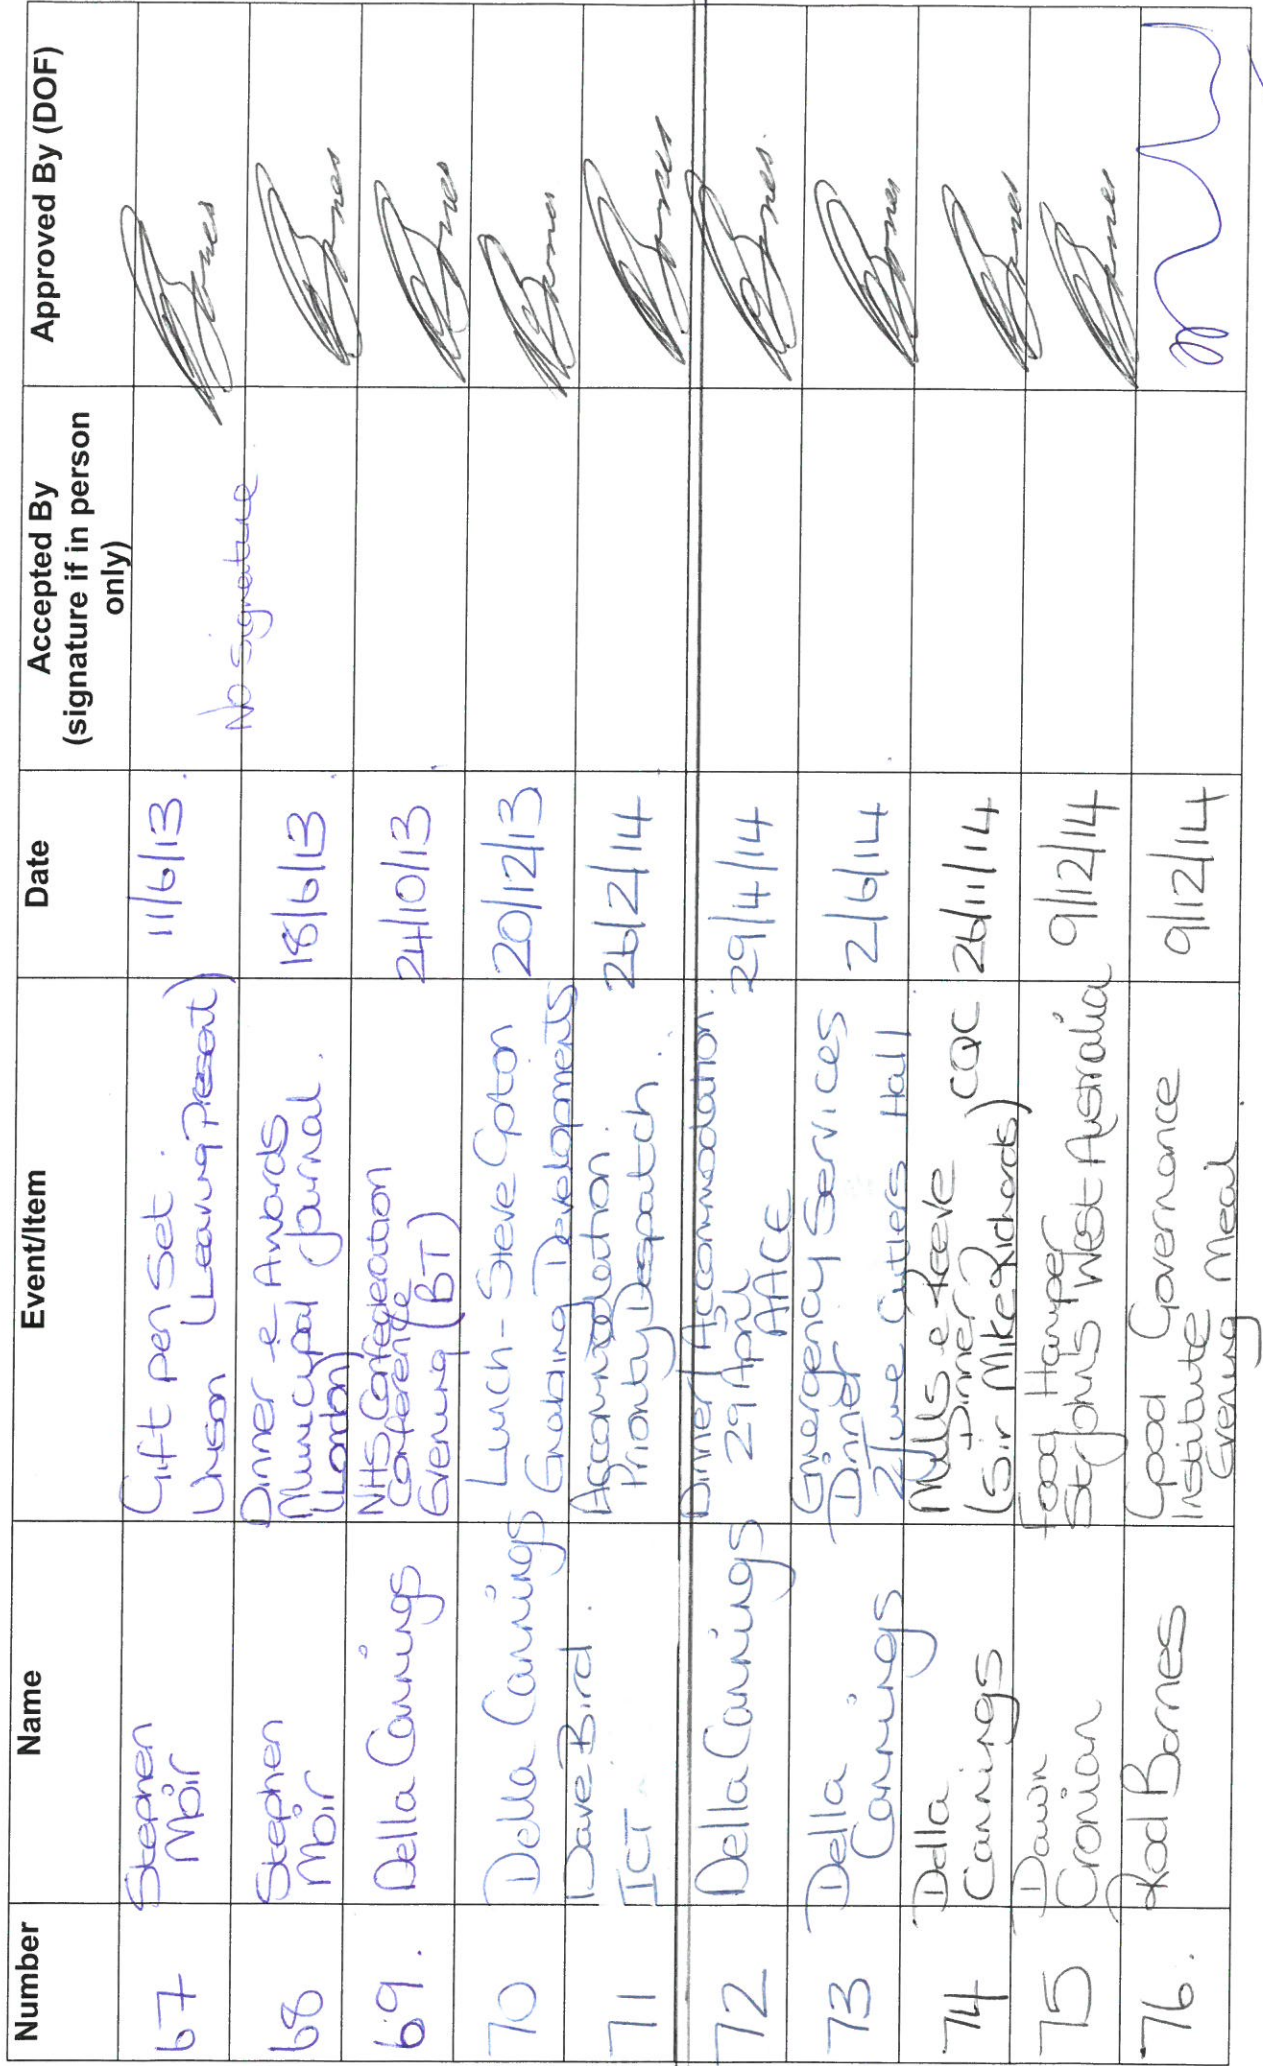 Number Name Event/Item Date Accepted By (signature if in person only) Approved By (DOF)
67 Stephen Moir Gift pen set. Unison (Leaving Present) 11/6/13 No signature
68 Stephen Moir Dinner & Awards Municipal Journal. (London) 18/6/13
69. Della Cannings NHS Confederation Conference Evening (BT) 24/10/13
70 Della Cannings Lunch - Steve Enabling Developments 20/12/13
71 Dave Bird. ICT Accommodation Priority Despatch. 26/2/14
72 Della Cannings Dinner/Accommodation 29 April AACE 29/4/14
73 Della Cannings Emergency Services Dinner 2 June Cutlers Hall 2/6/14
74 Della Cannings Mills & Reeve Dinner CQC (Sir Mike Richards) 26/11/14
75 Dawn Cronian Food Hamper St Johns West Australia 9/12/14
76. Rod Barnes Good Governance Institute Evening Meal 9/12/14